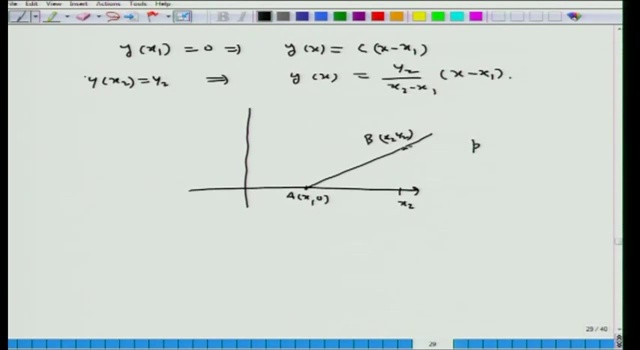 Edit View Insert Actions Tools Help
y(x₁) = 0 ⇒ y(x) = C(x-x₁)
y(x₂) = y₂ ⇒ y(x) = y₂/(x₂-x₁) (x-x₁).
B(x₂,y₂)
p
A(x₁,0)
x₂
29 / 40
29